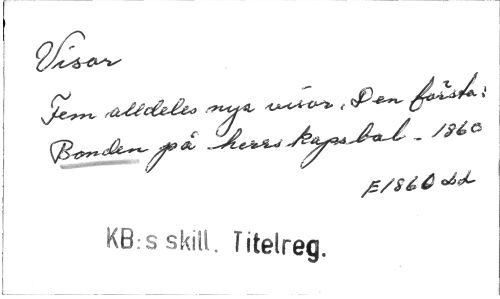 Visor
Fem alldeles nya visor. Den första:
Bonden på herrskapsbal. 1860
E1860 dd
KB:s skill. Titelreg.